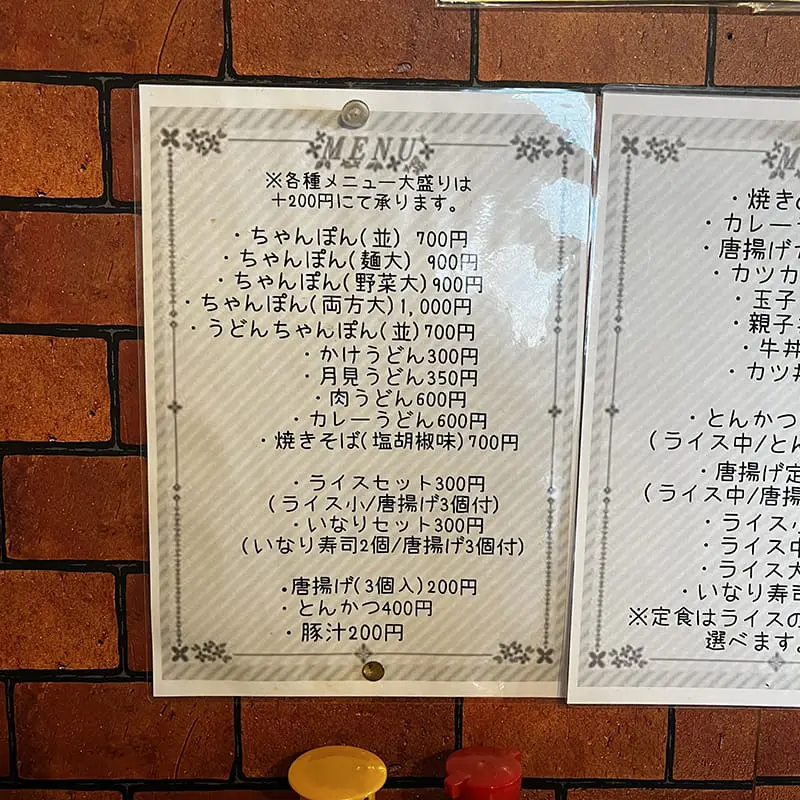 MENU
※各種メニュー大盛りは
+200円にて承ります。
・ちゃんぽん(並) 700円
・ちゃんぽん(麺大) 900円
・ちゃんぽん(野菜大)900円
・ちゃんぽん(両方大)1,000円
・うどんちゃんぽん(並)700円
・かけうどん300円
・月見うどん350円
・肉うどん600円
・カレーうどん600円
・焼きそば(塩胡椒味)700円
・ライスセット300円
(ライス小/唐揚げ3個付)
・いなりセット300円
(いなり寿司2個/唐揚げ3個付)
・唐揚げ(3個入)200円
・とんかつ400円
・豚汁200円
・焼き
・カレー
・唐揚げ
・カツカ
・玉子
・親子
・牛丼
・カツ丼
・とんかつ
(ライス中/とん
・唐揚げ定
(ライス中/唐揚
・ライス小
・ライス中
・ライス大
・いなり寿司
※定食はライスの
選べます。